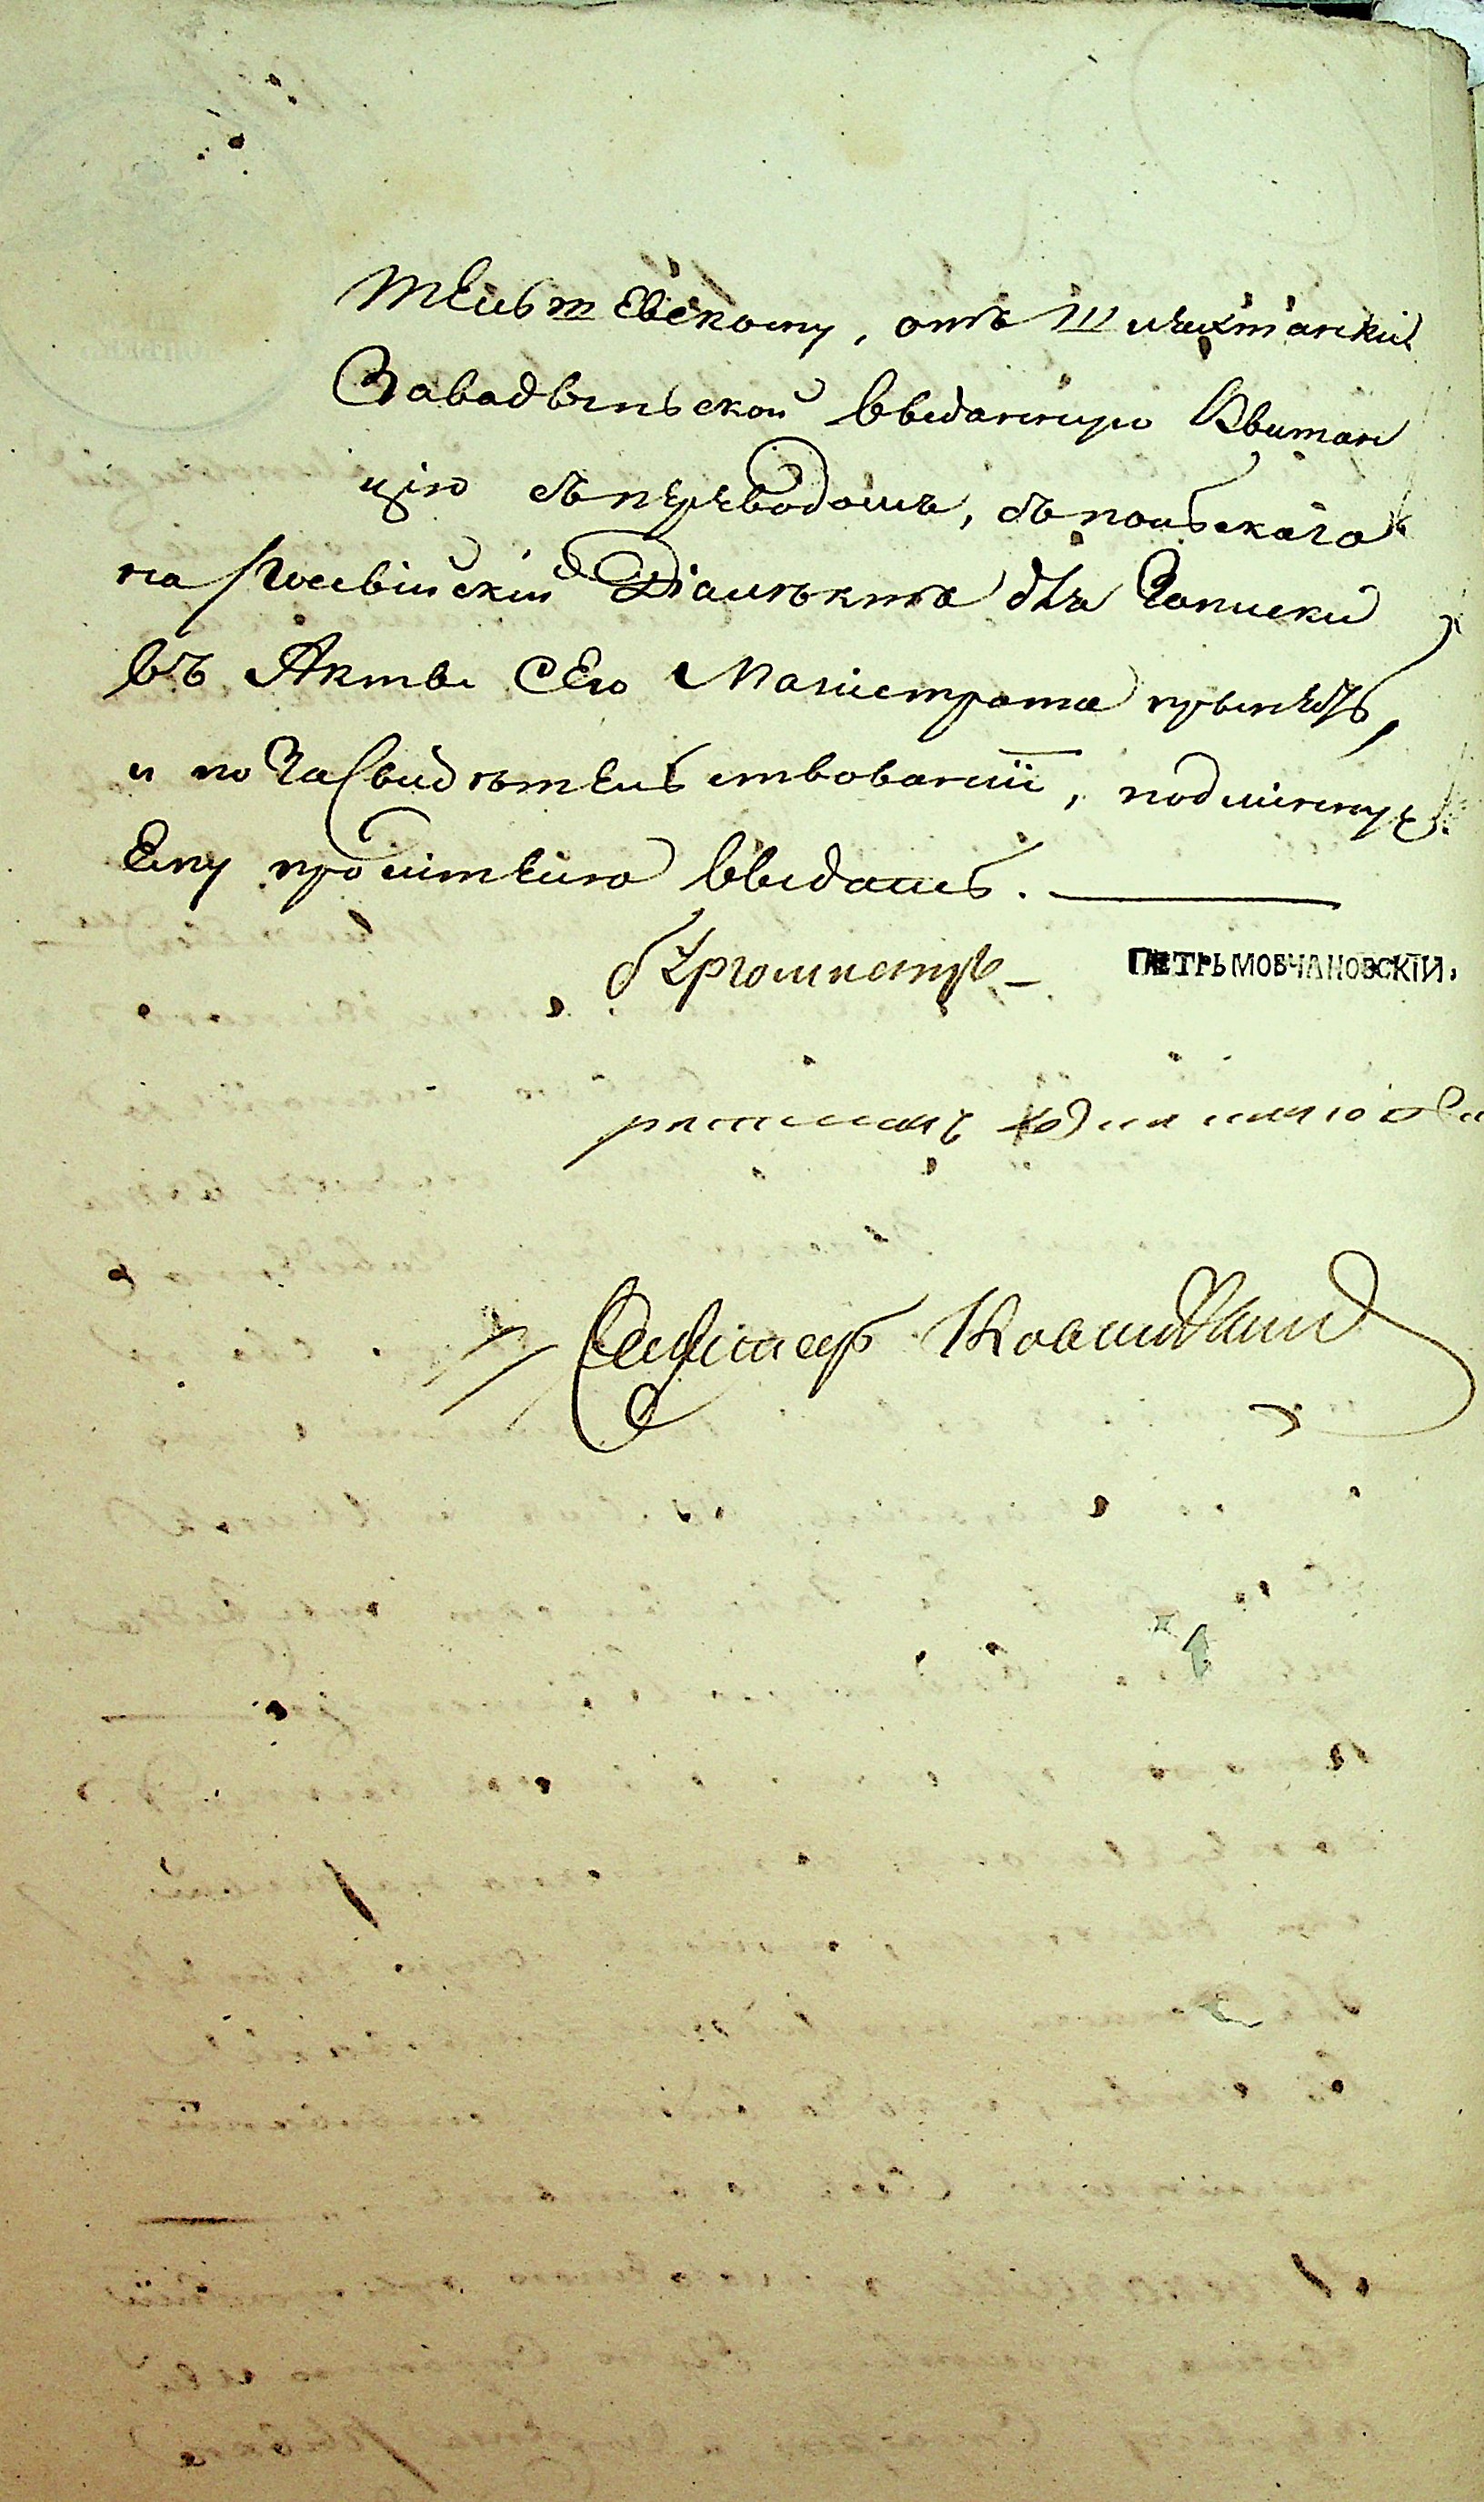 тельшевскому, отъ Шляхтянки
Завадынской выданную Квитан
цію съ переводомъ, съ польскаго
на Россійскій Діалектъ для Записки
въ Акты Сего Магистрата принять,
и по Засвидѣтельствованіи, подлинную
Ему просителю выдать.
бургомистръ
ПЕТРЪ МОВЧАНОВСКІЙ.
ратманъ